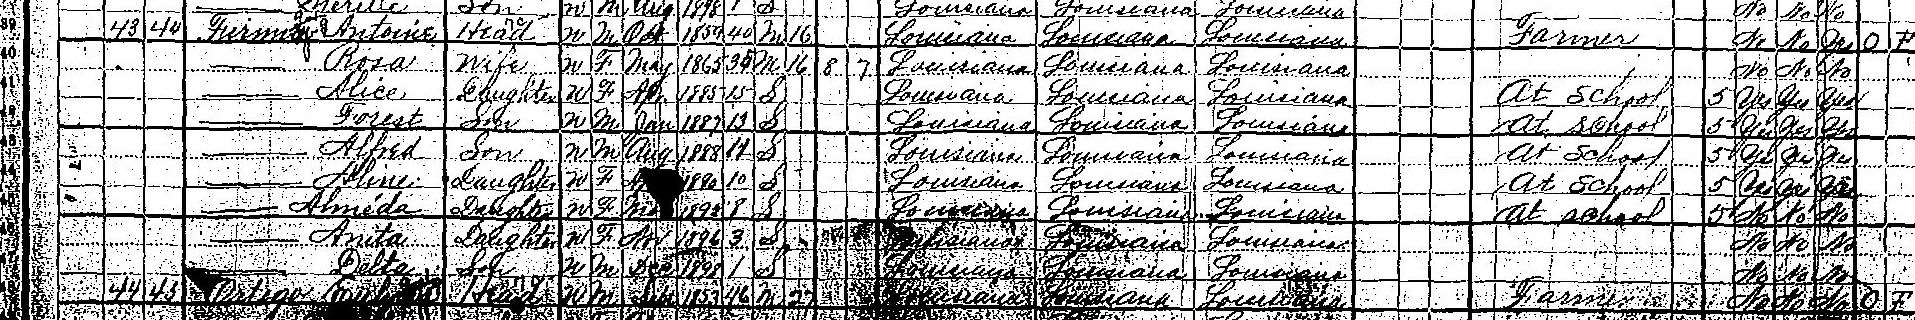 Son W M Aug 1898 1 S Louisiana Louisiana Louisiana No No No
39 43 44 Antoine Head W M Oct 1859 40 M 16 Louisiana Louisiana Louisiana Farmer No No O F
40 Rosa Wife W F May 1865 M 16 8 7 Louisiana Louisiana Louisiana No No No
41 Alice Daughter W F 1885 15 S Louisiana Louisiana Louisiana At School 5 Yes Yes Yes
Forest Son W M Jan 1887 13 S Louisiana Louisiana Louisiana At School 5 Yes Yes Yes
Alfred Son W M Aug 1888 11 S Louisiana Louisiana Louisiana At School 5 Yes Yes Yes
Aline Daughter W F 1890 10 S Louisiana Louisiana Louisiana At School 5 Yes Yes Yes
Alméda Daughter W F 8 S Louisiana Louisiana Louisiana At School 5 No No No
Anita Daughter W F Nov 1896 3 S Louisiana Louisiana Louisiana No No No
Delta Son W M Dec 1898 1 S Louisiana Louisiana Louisiana No No No
44 45 Head W M 1853 46 M 27 Louisiana Louisiana Louisiana Farmer No No No O F